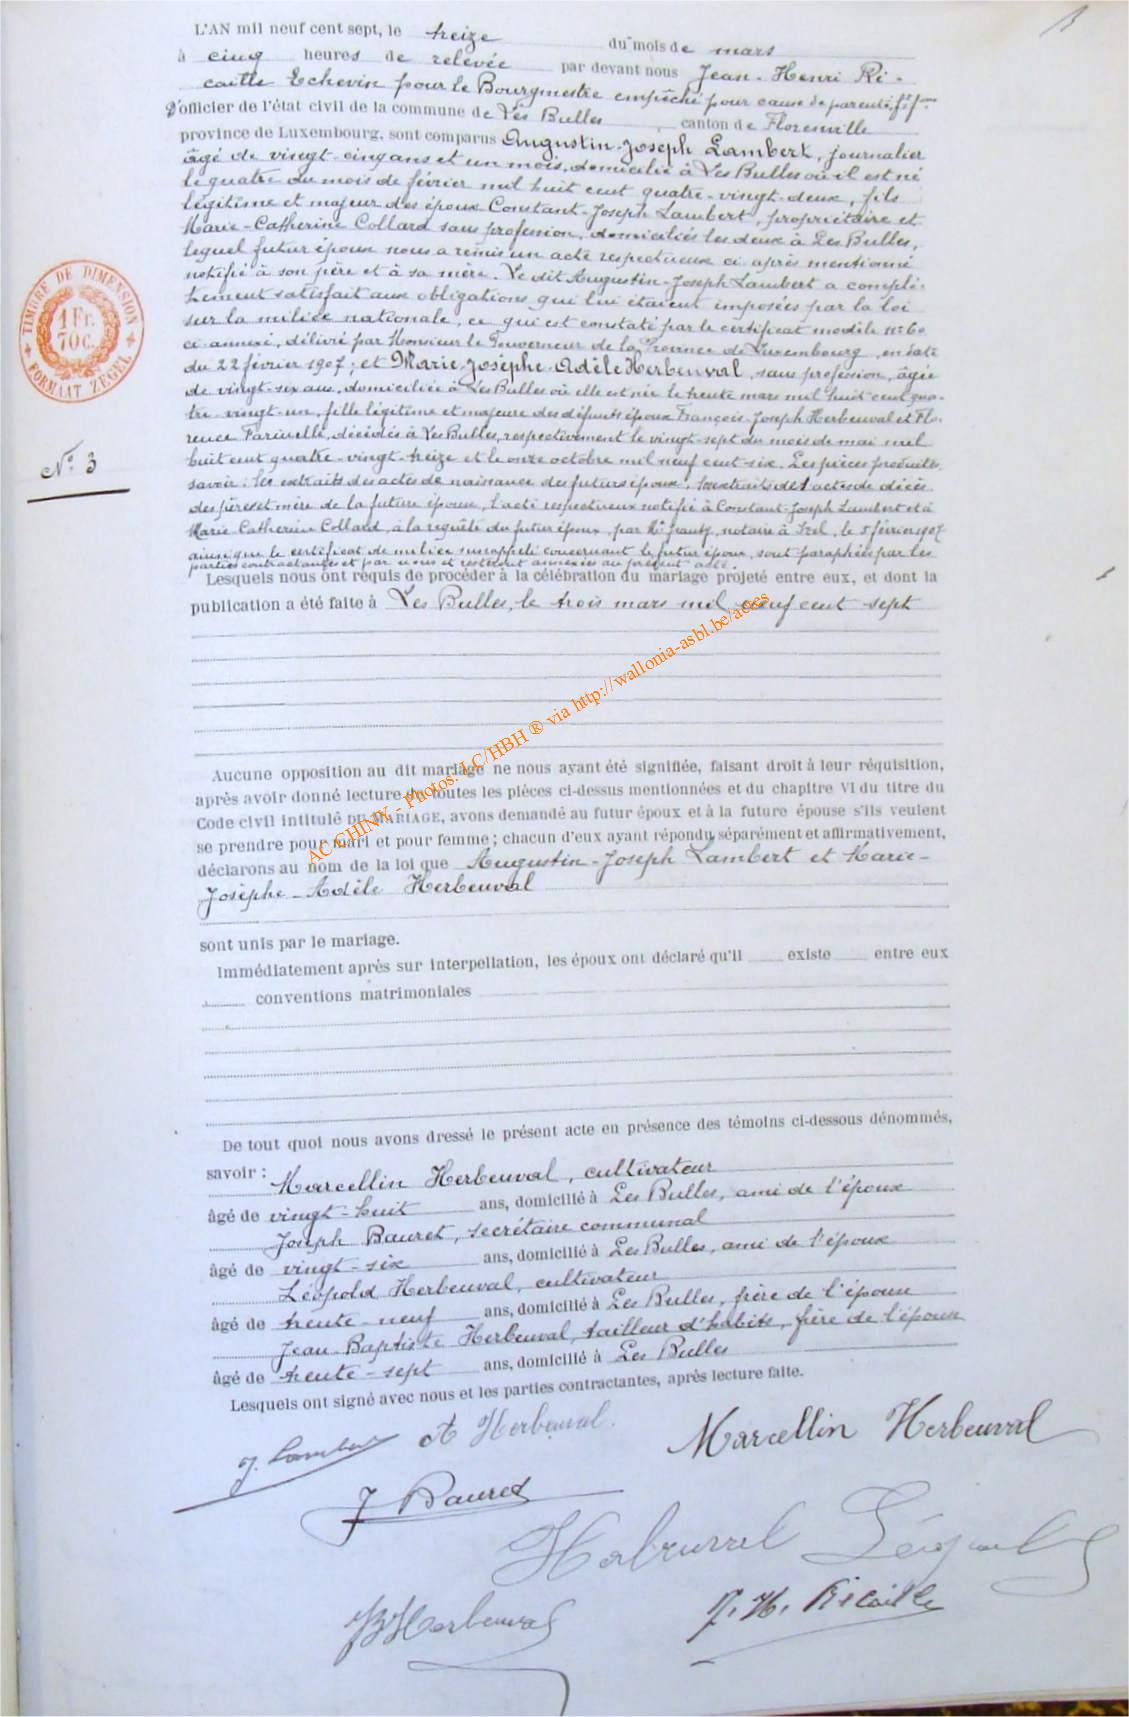 L'AN mil neuf cent sept, le treize du mois de mars
à cinq heures de relevée par devant nous Jean-Henri Ri-
caille Echevin pour le Bourgmestre empêché pour cause de parenté, f.f.
d'officier de l'état civil de la commune de Les Bulles, canton de Florenville
province de Luxembourg, sont comparus Augustin-Joseph Lambert, journalier
âgé de vingt-cinq ans et un mois, domicilié à Les Bulles où il est né
le quatre du mois de février mil huit cent quatre-vingt-deux, fils
légitime et majeur des époux Constant-Joseph Lambert, propriétaire et
Marie-Catherine Collard sans profession, domiciliés les deux à Les Bulles,
lequel futur époux nous a remis un acte respectueux ci-après mentionné
notifié à son père et à sa mère. Le dit Augustin-Joseph Lambert a complè-
tement satisfait aux obligations qui lui étaient imposées par la loi
sur la milice nationale, ce qui est constaté par le certificat modèle n° 60
ci-annexé, délivré par Monsieur le Gouverneur de la Province de Luxembourg, en date
du 22 février 1907; et Marie-Josèphe-Adèle Herbeuval, sans profession, âgée
de vingt-six ans, domiciliée à Les Bulles où elle est née le trente mars mil huit cent qua-
tre-vingt-un, fille légitime et majeure des défunts époux François-Joseph Herbeuval et Flo-
rence Farinelle, décédés à Les Bulles, respectivement le vingt-sept du mois de mai mil
huit cent quatre-vingt-treize et le onze octobre mil neuf cent six. Les pièces produites,
savoir: les extraits des actes de naissance des futurs époux, les extraits des actes de décès
des père et mère de la future épouse, l'acte respectueux notifié à Constant-Joseph Lambert et à
Marie-Catherine Collard, à la requête du futur époux, par Me Jeanty, notaire à Izel, le 5 février 1907
ainsi que le certificat de milice susrappelé concernant le futur époux, sont paraphées par les
parties contractantes et par nous et resteront annexées au présent acte.
1 Fr.
70 c.
TIMBRE DE DIMENSION
FORMAAT ZEGEL
N° 3
Lesquels nous ont requis de procéder à la célébration du mariage projeté entre eux, et dont la
publication a été faite à Les Bulles, le trois mars mil neuf cent sept
AC CHINY - Photos: LC/HBH ® via http://wallonia-asbl.be/actes
Aucune opposition au dit mariage ne nous ayant été signifiée, faisant droit à leur réquisition,
après avoir donné lecture de toutes les pièces ci-dessus mentionnées et du chapitre VI du titre du
Code civil intitulé DU MARIAGE, avons demandé au futur époux et à la future épouse s'ils veulent
se prendre pour mari et pour femme; chacun d'eux ayant répondu séparément et affirmativement,
déclarons au nom de la loi que Augustin-Joseph Lambert et Marie-
Josèphe-Adèle Herbeuval
sont unis par le mariage.
Immédiatement après sur interpellation, les époux ont déclaré qu'il existe entre eux
conventions matrimoniales
De tout quoi nous avons dressé le présent acte en présence des témoins ci-dessous dénommés,
savoir: Marcellin Herbeuval, cultivateur
âgé de vingt-huit ans, domicilié à Les Bulles, ami de l'époux
Joseph Bauret, secrétaire communal
âgé de vingt-six ans, domicilié à Les Bulles, ami de l'époux
Léopold Herbeuval, cultivateur
âgé de trente-neuf ans, domicilié à Les Bulles, frère de l'épouse
Jean-Baptiste Herbeuval, tailleur d'habits, frère de l'épouse
âgé de trente-sept ans, domicilié à Les Bulles
Lesquels ont signé avec nous et les parties contractantes, après lecture faite.
J. Lambert A Herbeuval. Marcellin Herbeuval
J Bauret
Herbeuval Léopold
JBHerbeuval J. H. Ricaille